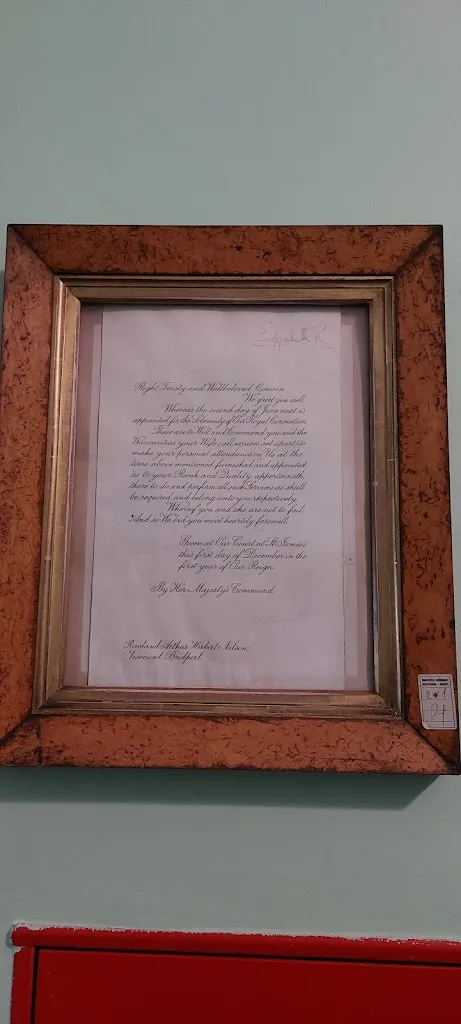 Elizabeth R
Right Trusty and Wellbeloved Cousin
We greet you well.
Whereas the second day of June next is
appointed for the Solemnity of Our Royal Coronation
These are to Will and Command you and the
Viscountess your Wife (all excuses set apart) to
make your personal attendance on Us at the
time above mentioned furnished and appointed
as to your Rank and Quality appertaineth,
there to do and perform all such Services as shall
be required and belong unto you respectively.
Whereof you and she are not to fail
And so We bid you most heartily farewell.
Given at Our Court at St. James's
this first day of December in the
first year of Our Reign
By Her Majesty's Command
Rowland Arthur Herbert Nelson,
Viscount Bridport.